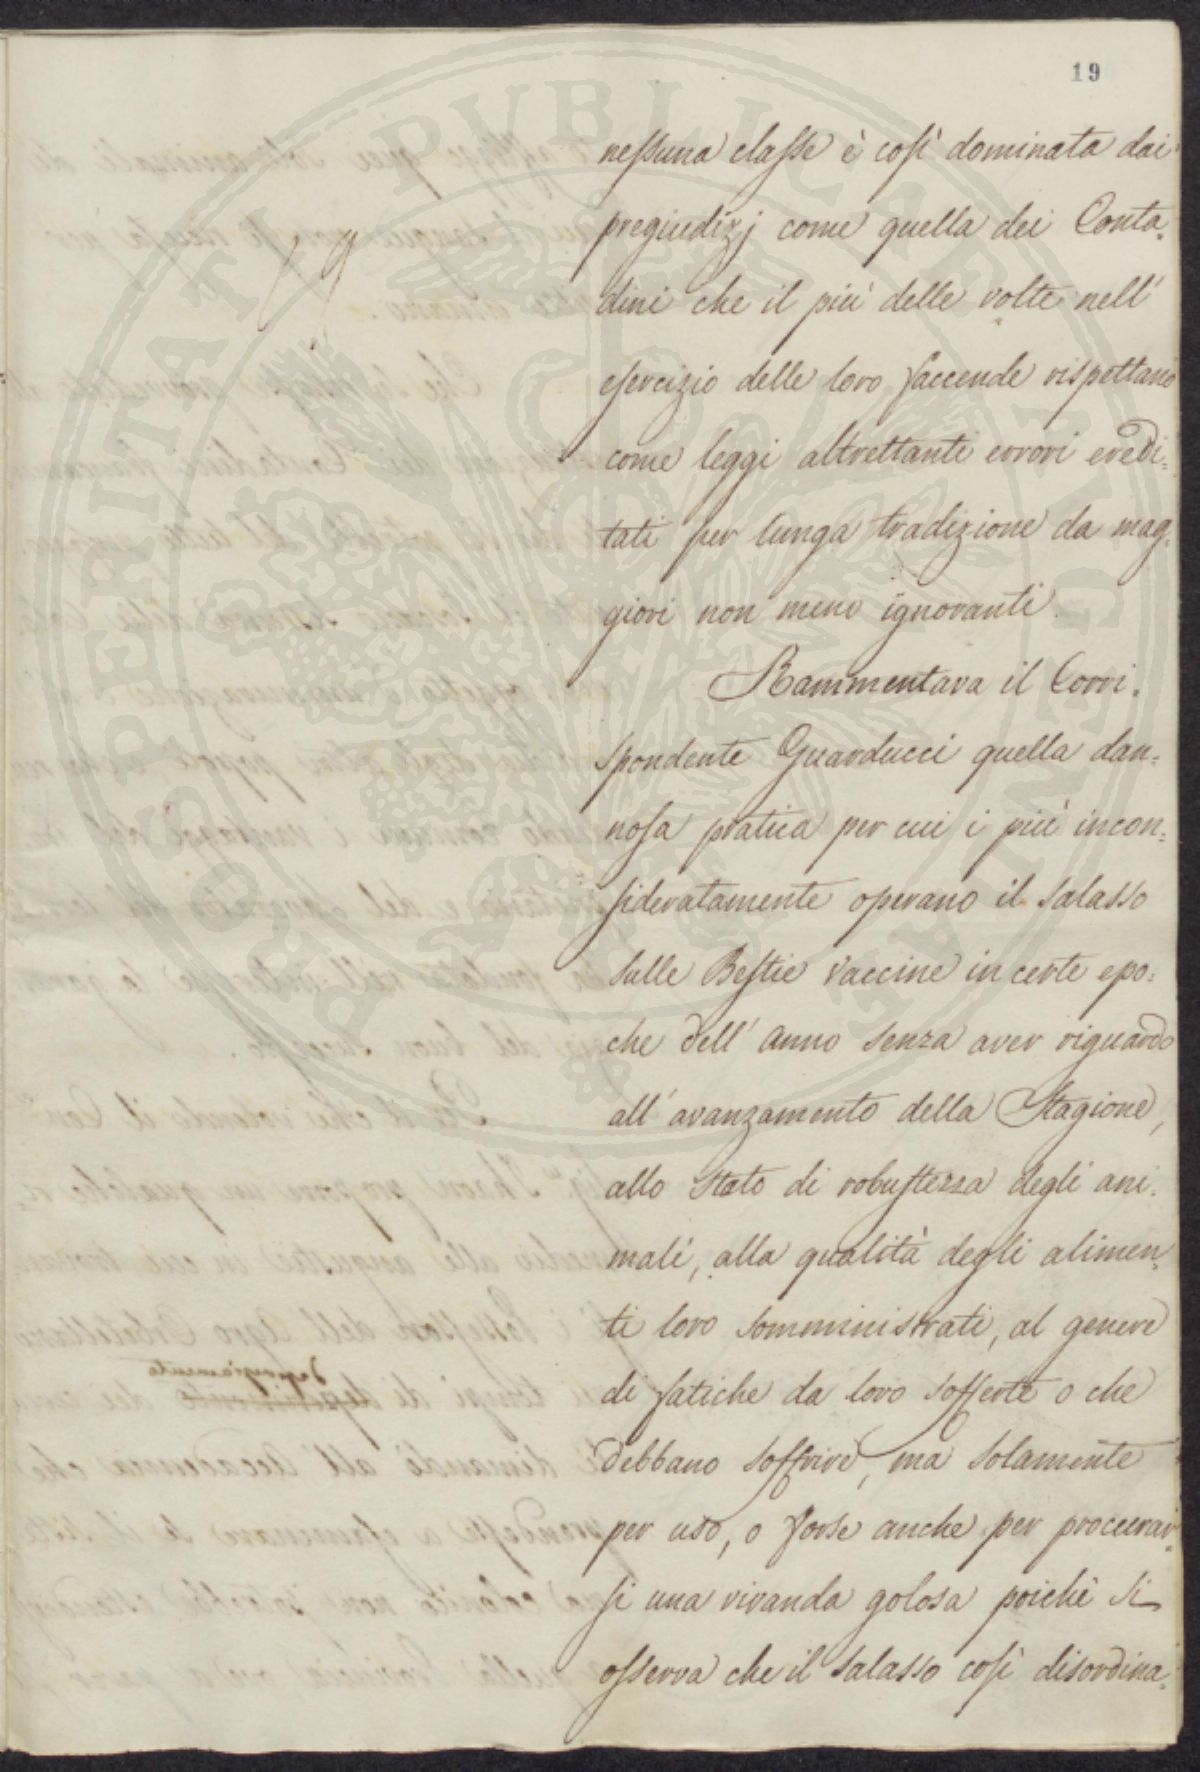 19
nessuna classe è così dominata dai
pregiudizj come quella dei Conta-
dini che il più delle volte nell'
esercizio delle loro faccende rispettano
come leggi altrettanti errori eredi-
tati per lunga tradizione da mag-
giori non meno ignoranti.
Rammentava il Corri-
spondente Guarducci quella dan-
nosa pratica per cui i più incon-
sideratamente operano il salasso
sulle Bestie vaccine in certe epo-
che dell' anno senza aver riguardo
all' avanzamento della Stagione,
allo stato di robustezza degli ani-
mali, alla qualità degli alimen-
ti loro somministrati, al genere
di fatiche da loro sofferte o che
debbano soffrire, ma solamente
per uso, o forse anche per procurar-
si una vivanda golosa poichè si
osserva che il salasso così disordina-
PROSPERITATI PUBLICAE AUGENDAE